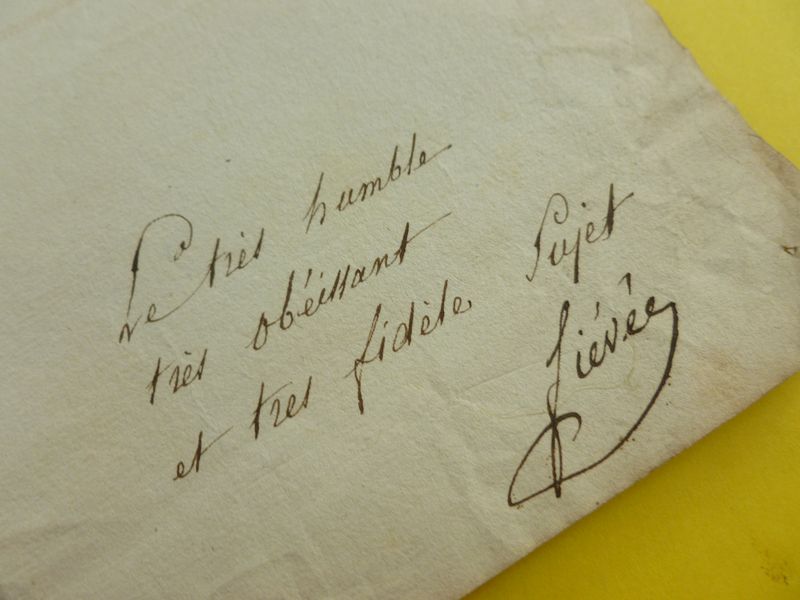 Le très humble
très obéissant
et tres fidèle Sujet
fiévée